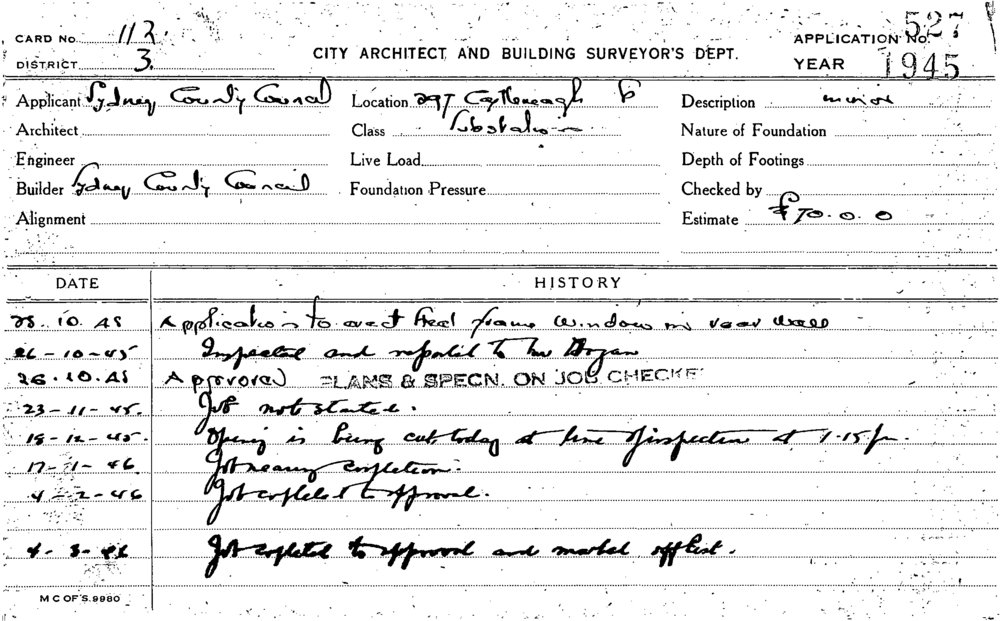 CARD No. 112 APPLICATION No. 527
DISTRICT 3 CITY ARCHITECT AND BUILDING SURVEYOR'S DEPT. YEAR 1945
Applicant Sydney County Council Location 297 Castlereagh St Description minor
Architect Class Substation Nature of Foundation
Engineer Live Load Depth of Footings
Builder Sydney County Council Foundation Pressure Checked by
Alignment Estimate £70.0.0
DATE HISTORY
25.10.45 Application to erect steel frame window in rear wall
26-10-45 Inspected and reported to Mr Hogan
26.10.45 Approved PLANS & SPECN. ON JOB CHECKE
23-11-45. Job not started.
18-12-45. Opening is being cut today at time of inspection at 1-15 pm.
17-1-46 Job nearing completion.
4-2-46 Job completed to approval.
4-3-46 Job completed to approval and marked off list.
M C OF S. 9980